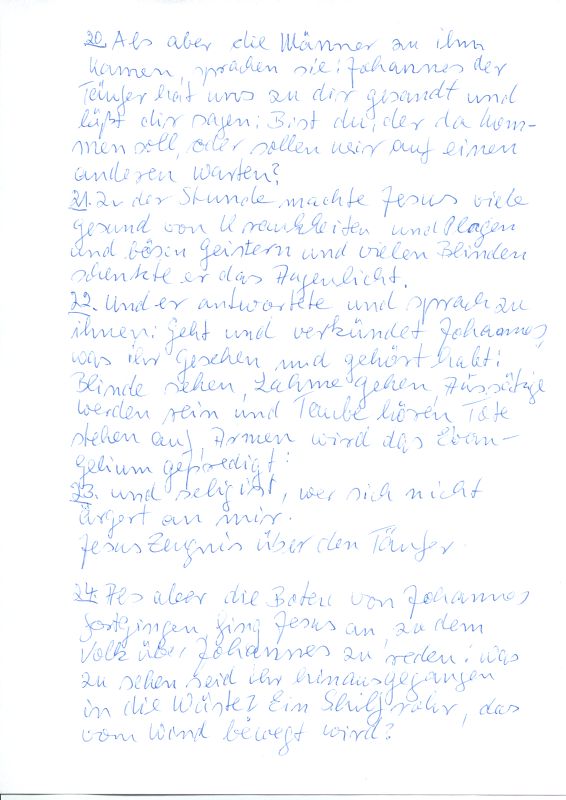 20. Als aber die Männer zu ihm
kamen, sprachen sie: Johannes der
Täufer hat uns zu dir gesandt und
läßt dir sagen: Bist du, der da kom-
men soll, oder sollen wir auf einen
anderen warten?
21. Zu der Stunde machte Jesus viele
gesund von Krankheiten und Plagen
und bösen Geistern und vielen Blinden
schenkte er das Augenlicht.
22. Und er antwortete und sprach zu
ihnen: Geht und verkündet Johannes,
was ihr gesehen und gehört habt:
Blinde sehen, Lahme gehen, Aussätzige
werden rein und Taube hören Tote
stehen auf, Armen wird das Evan-
gelium gepredigt!
23. und selig ist, wer sich nicht
ärgert an mir.
Jesus Zeugnis über den Täufer.
24. Als aber die Boten von Johannes
fortgingen, fing Jesus an, zu dem
Volk über Johannes zu reden: was
zu sehen seid ihr hinausgegangen
in die Wüste? Ein Schilfrohr, das
vom Wind bewegt wird?